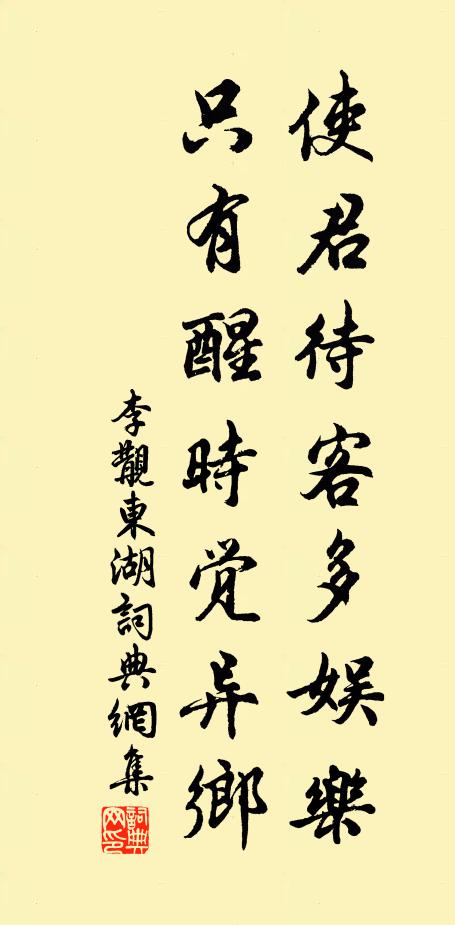 使君待客多娱樂
只有醒時覚异鄉
李觏東湖詞典網集
詞典网印